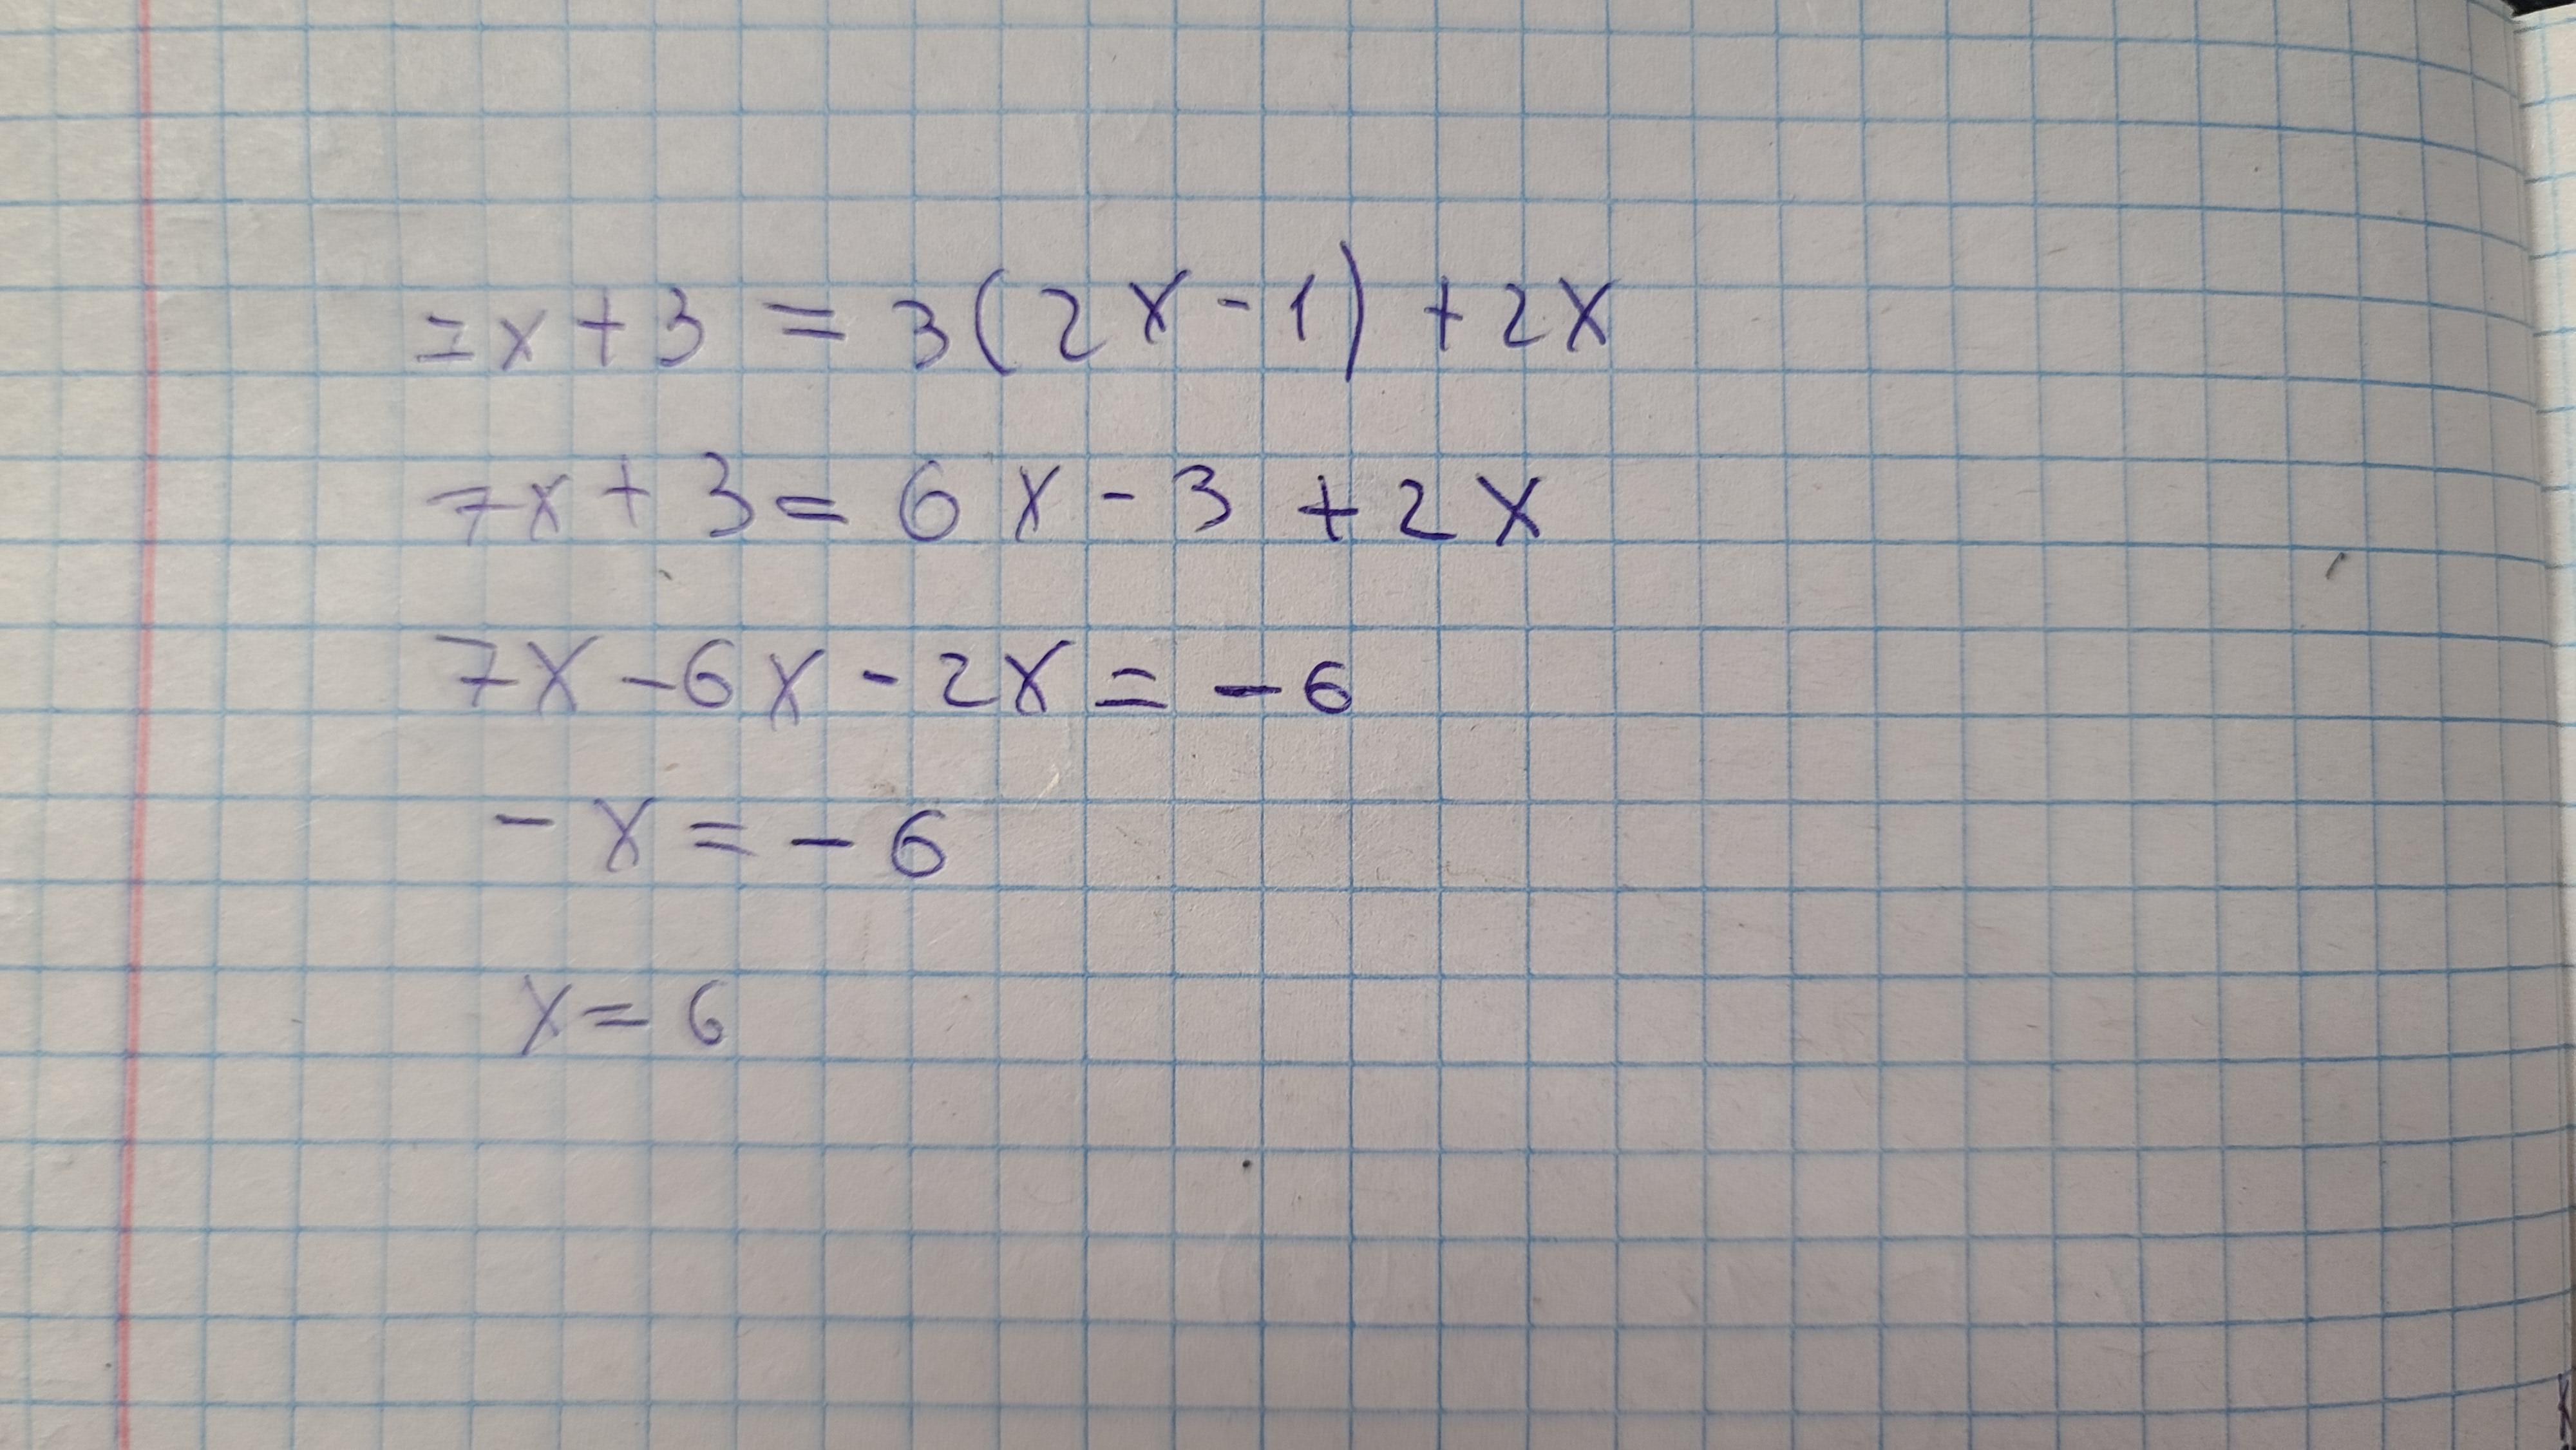 7x + 3 = 3(2x - 1) + 2x
7x + 3 = 6x - 3 + 2x
7x - 6x - 2x = - 6
- x = - 6
x = 6